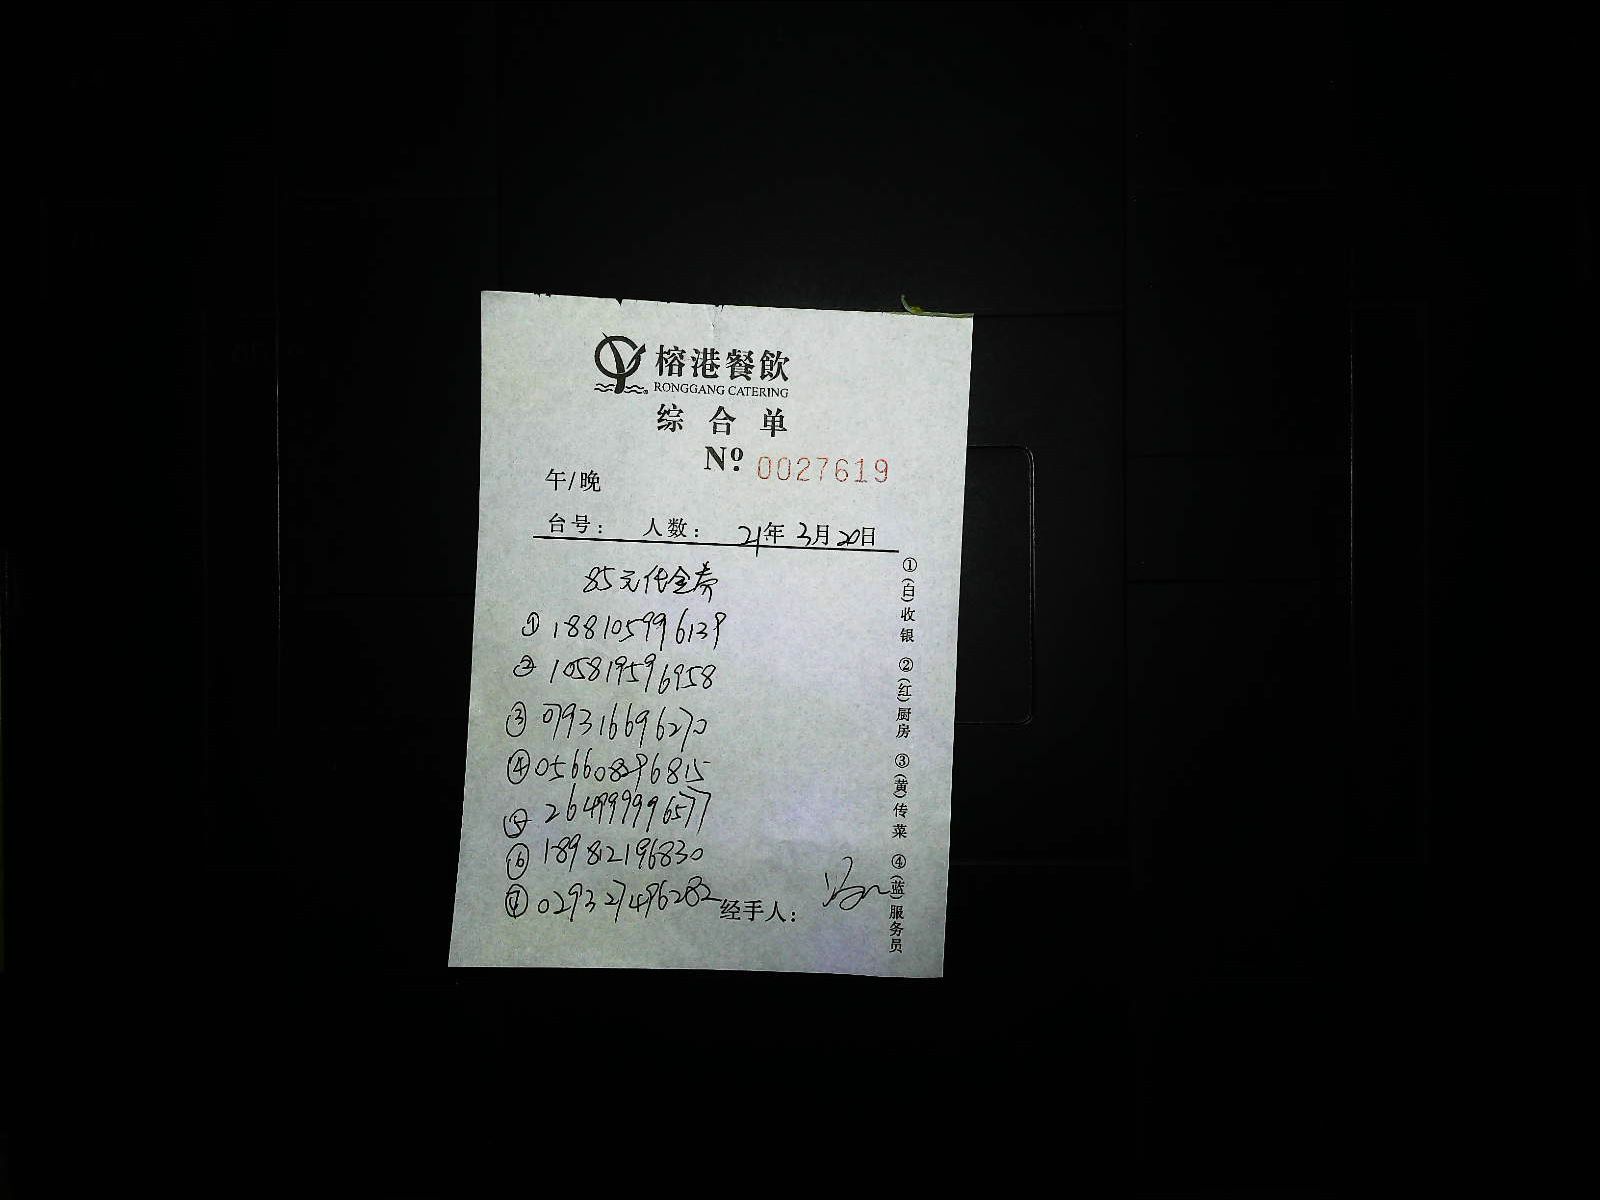 榕港餐飲
RONGGANG CATERING
综合单
Nº 0027619
午/晚
台号： 人数： 21年 3月20日
85元代金券
① 188105996139
② 105819596958
③ 079316696270
④ 056608296815
⑤ 264999996577
⑥ 189812196830
⑦ 029327496282
经手人：
①(白)收银 ②(红)厨房 ③(黄)传菜 ④(蓝)服务员